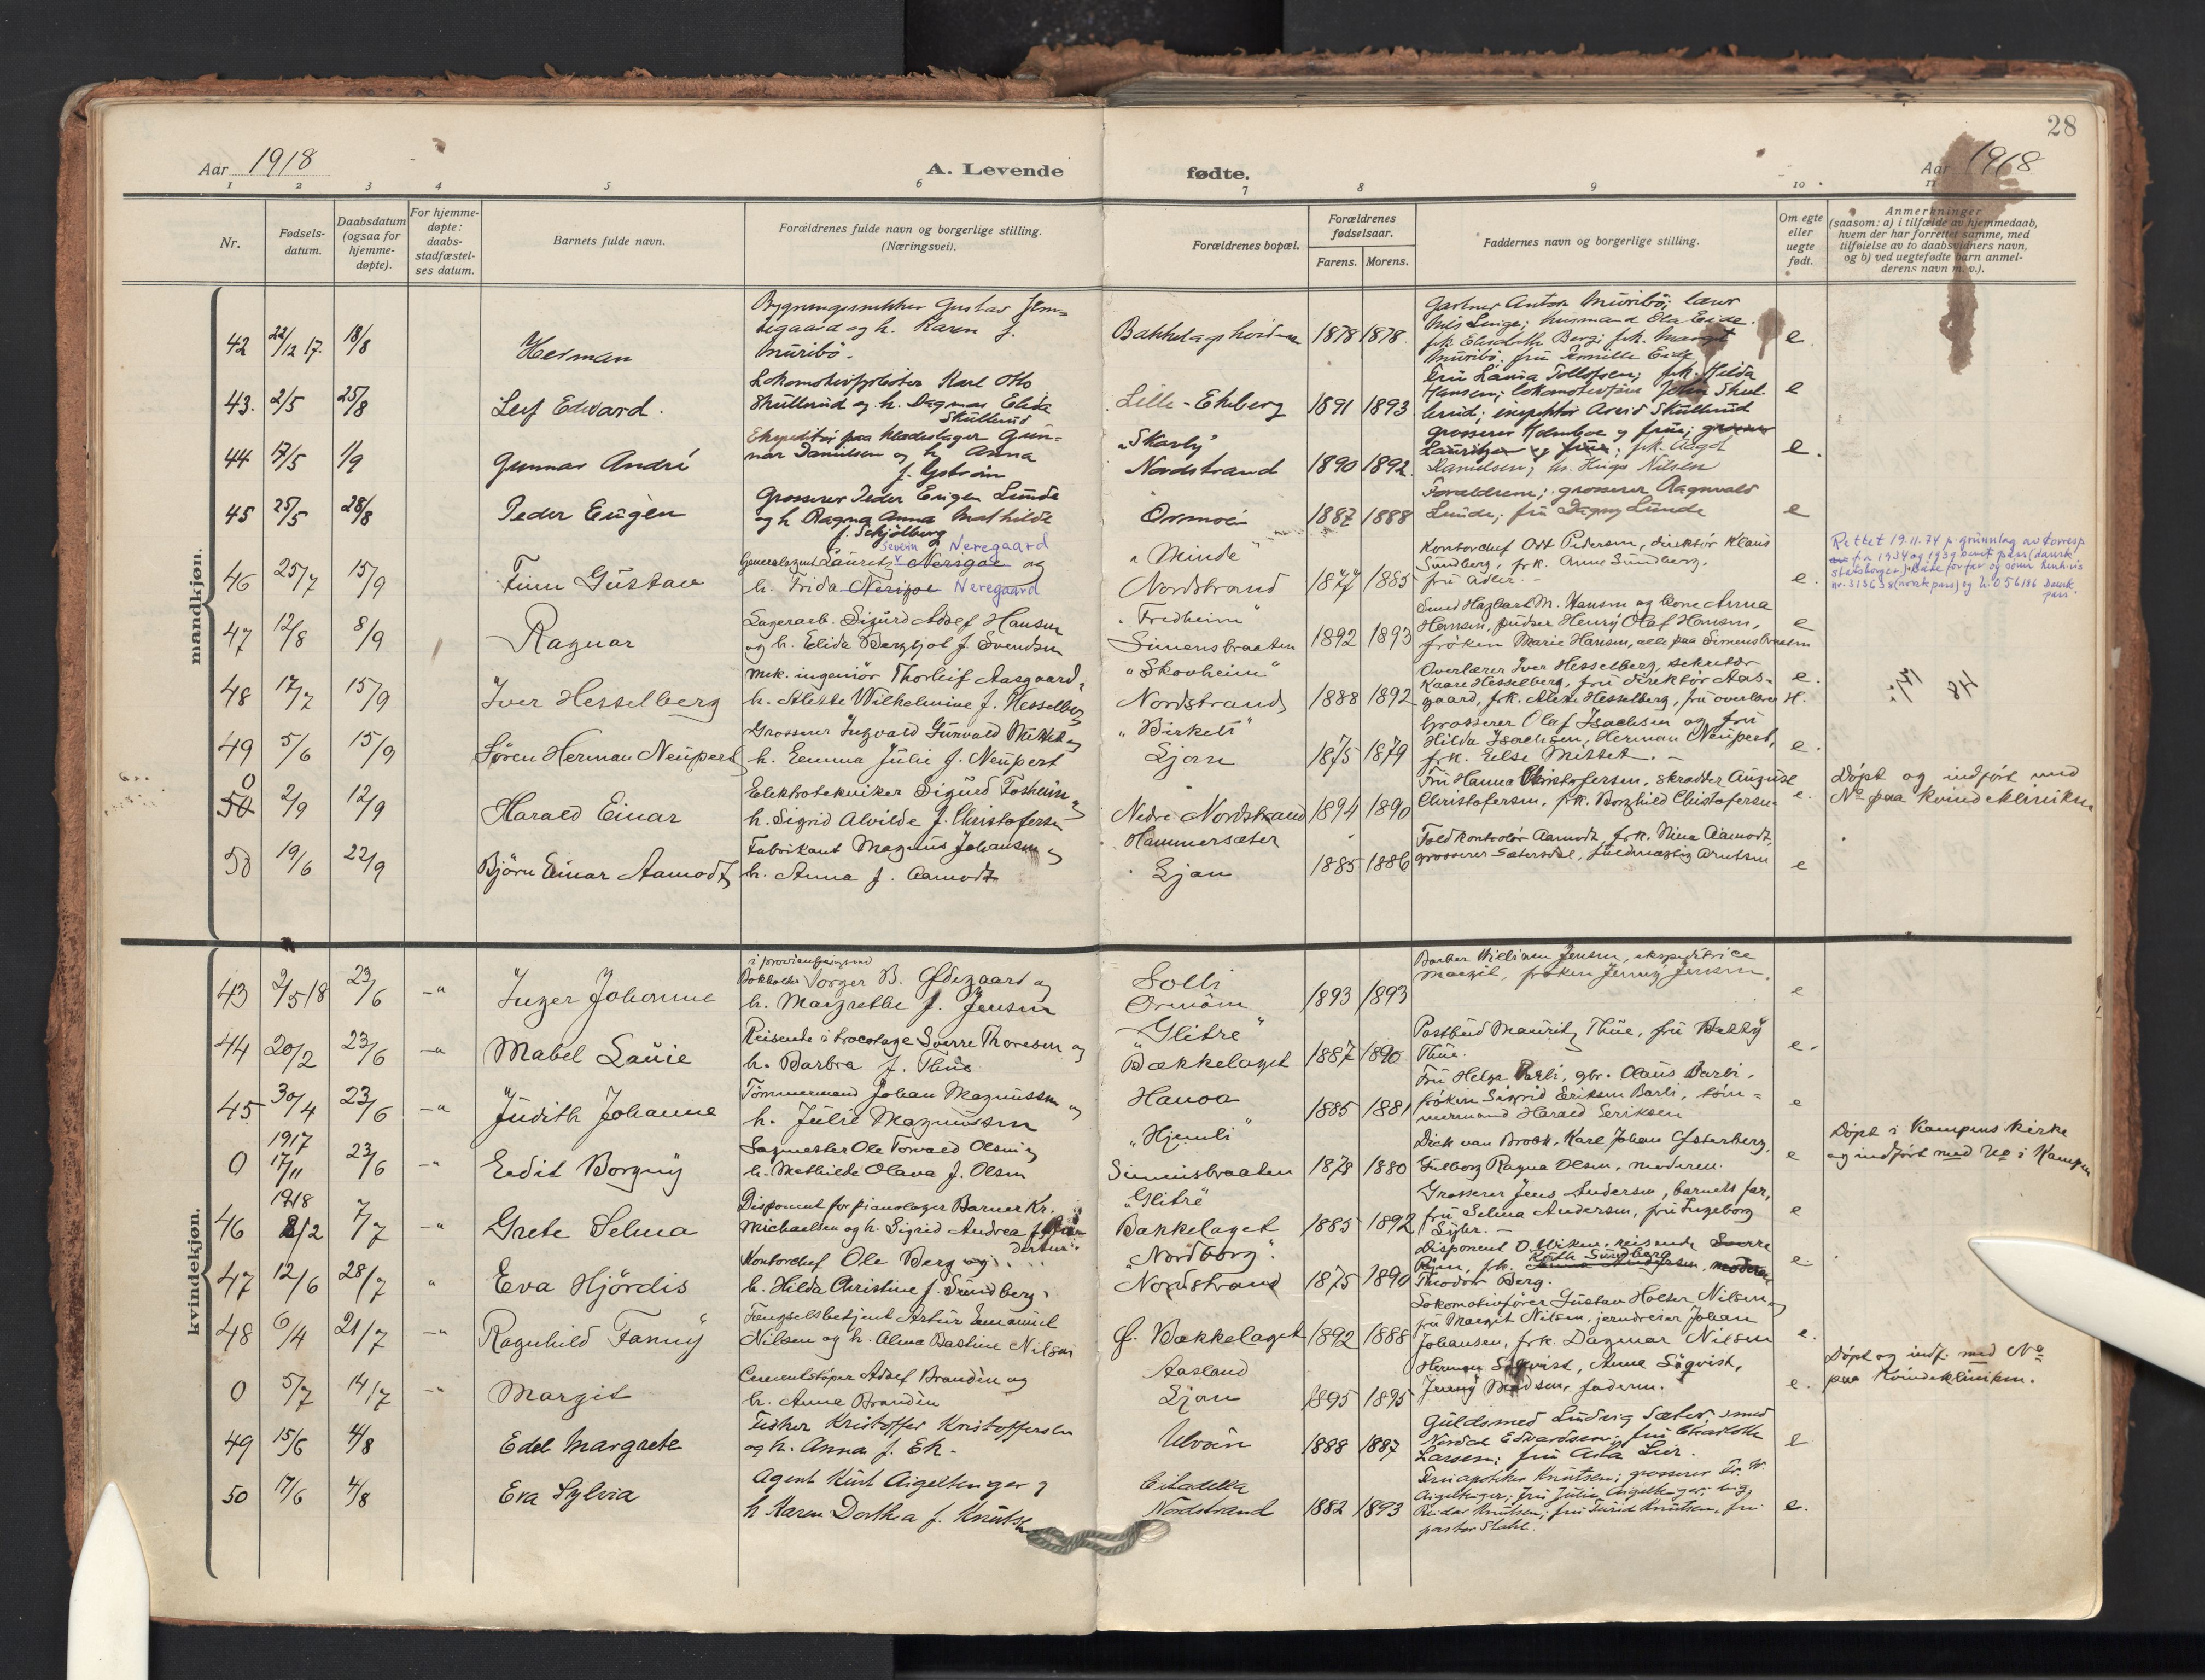 28
Aar 1918
A. Levende fødte.
Aar 1918
1 2 3 4 5 6 7 8 9 10 11
Nr.
Fødsels-
datum.
Daabsdatum
(ogsaa for
hjemme-
døpte).
For hjemme-
døpte:
daabs-
stadfæstel-
ses datum.
Barnets fulde navn.
Forældrenes fulde navn og borgerlige stilling.
(Næringsvei).
Forældrenes bopæl.
Forældrenes
fødselsaar.
Farens. Morens.
Faddernes navn og borgerlige stilling.
Om egte
eller
uegte
født.
Anmerkninger
(saasom: a) i tilfælde av hjemmedaab,
hvem der har forrettet samme, med
tilføielse av to daabsvidners navn,
og b) ved uegtefødte barn anmel-
derens navn m. v.).
mandkjøn.
42 22/12 17. 18/8 Herman
Gustav
og h. Karen f.
Muribö.
1878 1878.
Gartner Anton Muribö;
husmand Ola Eide.
frk. Elisabeth Berg; frk. Margit
Muribö. fru Pernille Eide
e.
43. 2/5 25/8 Leif Edward.
Karl Otto
Skullerud og h. Dagmar Elida
Skullerud
Lille-Ekeberg 1891 1893
Fru Laura Tollefsen; frk. Hilda
Hansen; lokomotivfører John Skul-
lerud; inspektør Arvid Skullerud
e
44 17/5 1/9 Gunnar André
Ekspeditør paa klædeslager Gun-
nar Danielsen og h. Anna
f. Gström
"Skarly"
Nordstrand 1890 1892.
Grosserer Holmboe og frue; grosserer
Lauritzen og frue; frk. Aagot
Danielsen; hr. Hugo Nilsen
e.
45 25/5 28/8 Peder Eugèn
Grosserer Peder Eugen Lunde
og h Ragna Anna Mathilde
f. Schjölberg
Ormøen 1887 1888
Forældrene; grosserer Ragnvald
Lunde; fru Dagny Lunde
e
46 25/7 15/9 Finn Gustav
Severin Neregaard
Generalagent Lauretz Nersgae og
h. Frida Neregaard
"Minde"
Nordstrand 1877 1885
Kontorchef Ott Pedersen, direktör Klaus
Sundberg, frk. Anne Sundberg,
fru Adler.
e.
Rettet 19.11.74 p. grunnlag av
fra 1934 og 1939 samt pass (dansk
statsborger)
nr. 313638 (norsk pass) og 056186 Dansk
pass.
47 12/8 8/9 Ragnar
Lagerarb. Sigurd Adolf Hansen
og h. Elida Bergljot f. Svendsen
"Fredheim"
Simensbraaten 1892 1893
Smed Hagbart M. Hansen og kone Anna
Hansen, pudser Henry Olaf Hansen,
fröken Marie Hansen, alle paa Simensbraaten
e
48 17/7 15/9 Iver Hesselberg
Mek. ingeniör Thorleif Aasgaard,
h. Alette Wilhelmine f. Hesselberg
"Skovheim"
Nordstrand 1888 1892
Overlærer Iver Hesselberg, sekretær
Kaare Hesselberg, fru direktör Aas-
gaard, frk. Hesselberg, fru overlærer H.
e.
49 5/6 15/9 Søren Herman Neupert
Grosserer Ingvald Gunvald Mittet og
h. Emma Julie f. Neupert
"Birkeli"
Ljan 1875 1879
Grosserer Olaf Isachsen og fru
Hilda Isachsen, Herman Neupert,
frk. Else Mittet.
e.
0
50 2/9 12/9 Harald Einar
Elektrotekniker Sigurd Fosheim og
h. Sigrid Alvilde f. Christofersen
Nedre Nordstrand 1894 1890
Fru Hanna Christofersen, skrædder August
Christofersen, frk. Borghild Christofersen
e.
Döpt og indfört med
No paa kvindeklinikken
50 19/6 22/9 Björn Einar Aamodt
Fabrikant Magnus Johansen og
h. Anna f. Aamodt
Hammersæter
Ljan 1885 1886
Toldkontrolör Aamodt, frk. Nina Aamodt,
grosserer Sætersdal, fuldmægtig Arntsen
e
kvindekjøn.
43 2/5 18 23/6 -"- Inger Johanne
Bokholder Jorger B. Ødegaart og
h. Margrethe f. Jensen
Solli
Ormöen 1893 1893
Barber William Jensen, ekspeditrice
Margit, fröken Jenny Jensen.
e
44 20/2 23/6 -"- Mabel Lauie
Reisende i trœcotage Sverre Thoresen og
h. Barbra f. Thue
"Glitre"
Bækkelaget 1887 1890
Postbud Mauritz Thue, fru Betty
Thue.
e.
45 30/4 23/6 -"- Judith Johanne
Tömmermand Johan Magnussen og
h. Julie Magnussen
Hanoa 1885 1881
Fru Helga Barli, gbr. Olaus Barli,
fröken Sigrid Eriksen Barli, töm-
mermand Harald Eriksen
e
1917
0 17/11 23/6 -"- Eedit Borgny
Sagmester Ole Torvald Olsen og
h. Mathilde Olava f. Olsen
"Hjemli"
Simensbraaten 1878 1880
Dick van Brock, Karl Johan Østerberg,
Gulborg Ragna Olsen, moderen.
e
Döpt i Kampens kirke
og indfört med No i Kampen
1918
46 8/2 7/7 -"- Grete Selma
Disponent for pianolager Barner Kr.
Michaelsen og h. Sigrid Andrea
"Glitre"
Bækkelaget 1885 1892
Grosserer Jens Andersen, barnets far,
fru Selma Andersen, fru Ingeborg
e
47 12/6 28/7 " Eva Hjördis
Kontorchef Ole Berg og
h. Hilda Christine f. Sundberg.
"Nordborg".
Nordstrand 1875 1890
Disponent O. Wiken, reisende Sverre
frk. Ruth Sundberg
Theodor Berg.
e
48 6/4 21/7 -"- Ragnhild Fanny
Fængselsbetjent Artur Emanuel
Nilsen og h. Alma Bastine Nilsen
Ø. Bækkelaget 1892 1888
Lokomotivförer Gustav Holter Nilsen og
fru Margit Nilsen, jerndreier Johan
Johansen, frk. Dagmar Nilsen
e.
0 5/7 14/7 -"- Margit
Cementstöper Adolf Brandèn og
h. Anna Brandèn
Aasland
Ljan 1895 1895
Herman Söqvist, Anna Söqvist,
Jenny Madsen, faderen.
e.
Döpt og indf. med No
paa Kvindekliniken.
49 15/6 4/8 Edel Margrete
Fisker Kristoffer Kristoffersen
og h. Anna f. Ek.
Ulvöen 1888 1887
Guldsmed Ludvig Sæter, smed
Nordal Edvardsen; fru Charlotte
Larsen; fru Asta Lier.
e
50 17/6 4/8 Eva Sylvia
Agent Kurt Aigeltinger og
h Karen Dorthea f. Knutsen
Citadella
Nordstrand 1882 1893
Fru apotheker Knutsen; grosserer Fr. W.
Aigeltinger; fru Julie Aigeltinger;
Reidar Knutsen; fru Turid Knutsen, fru
pastor Stahl.
e.